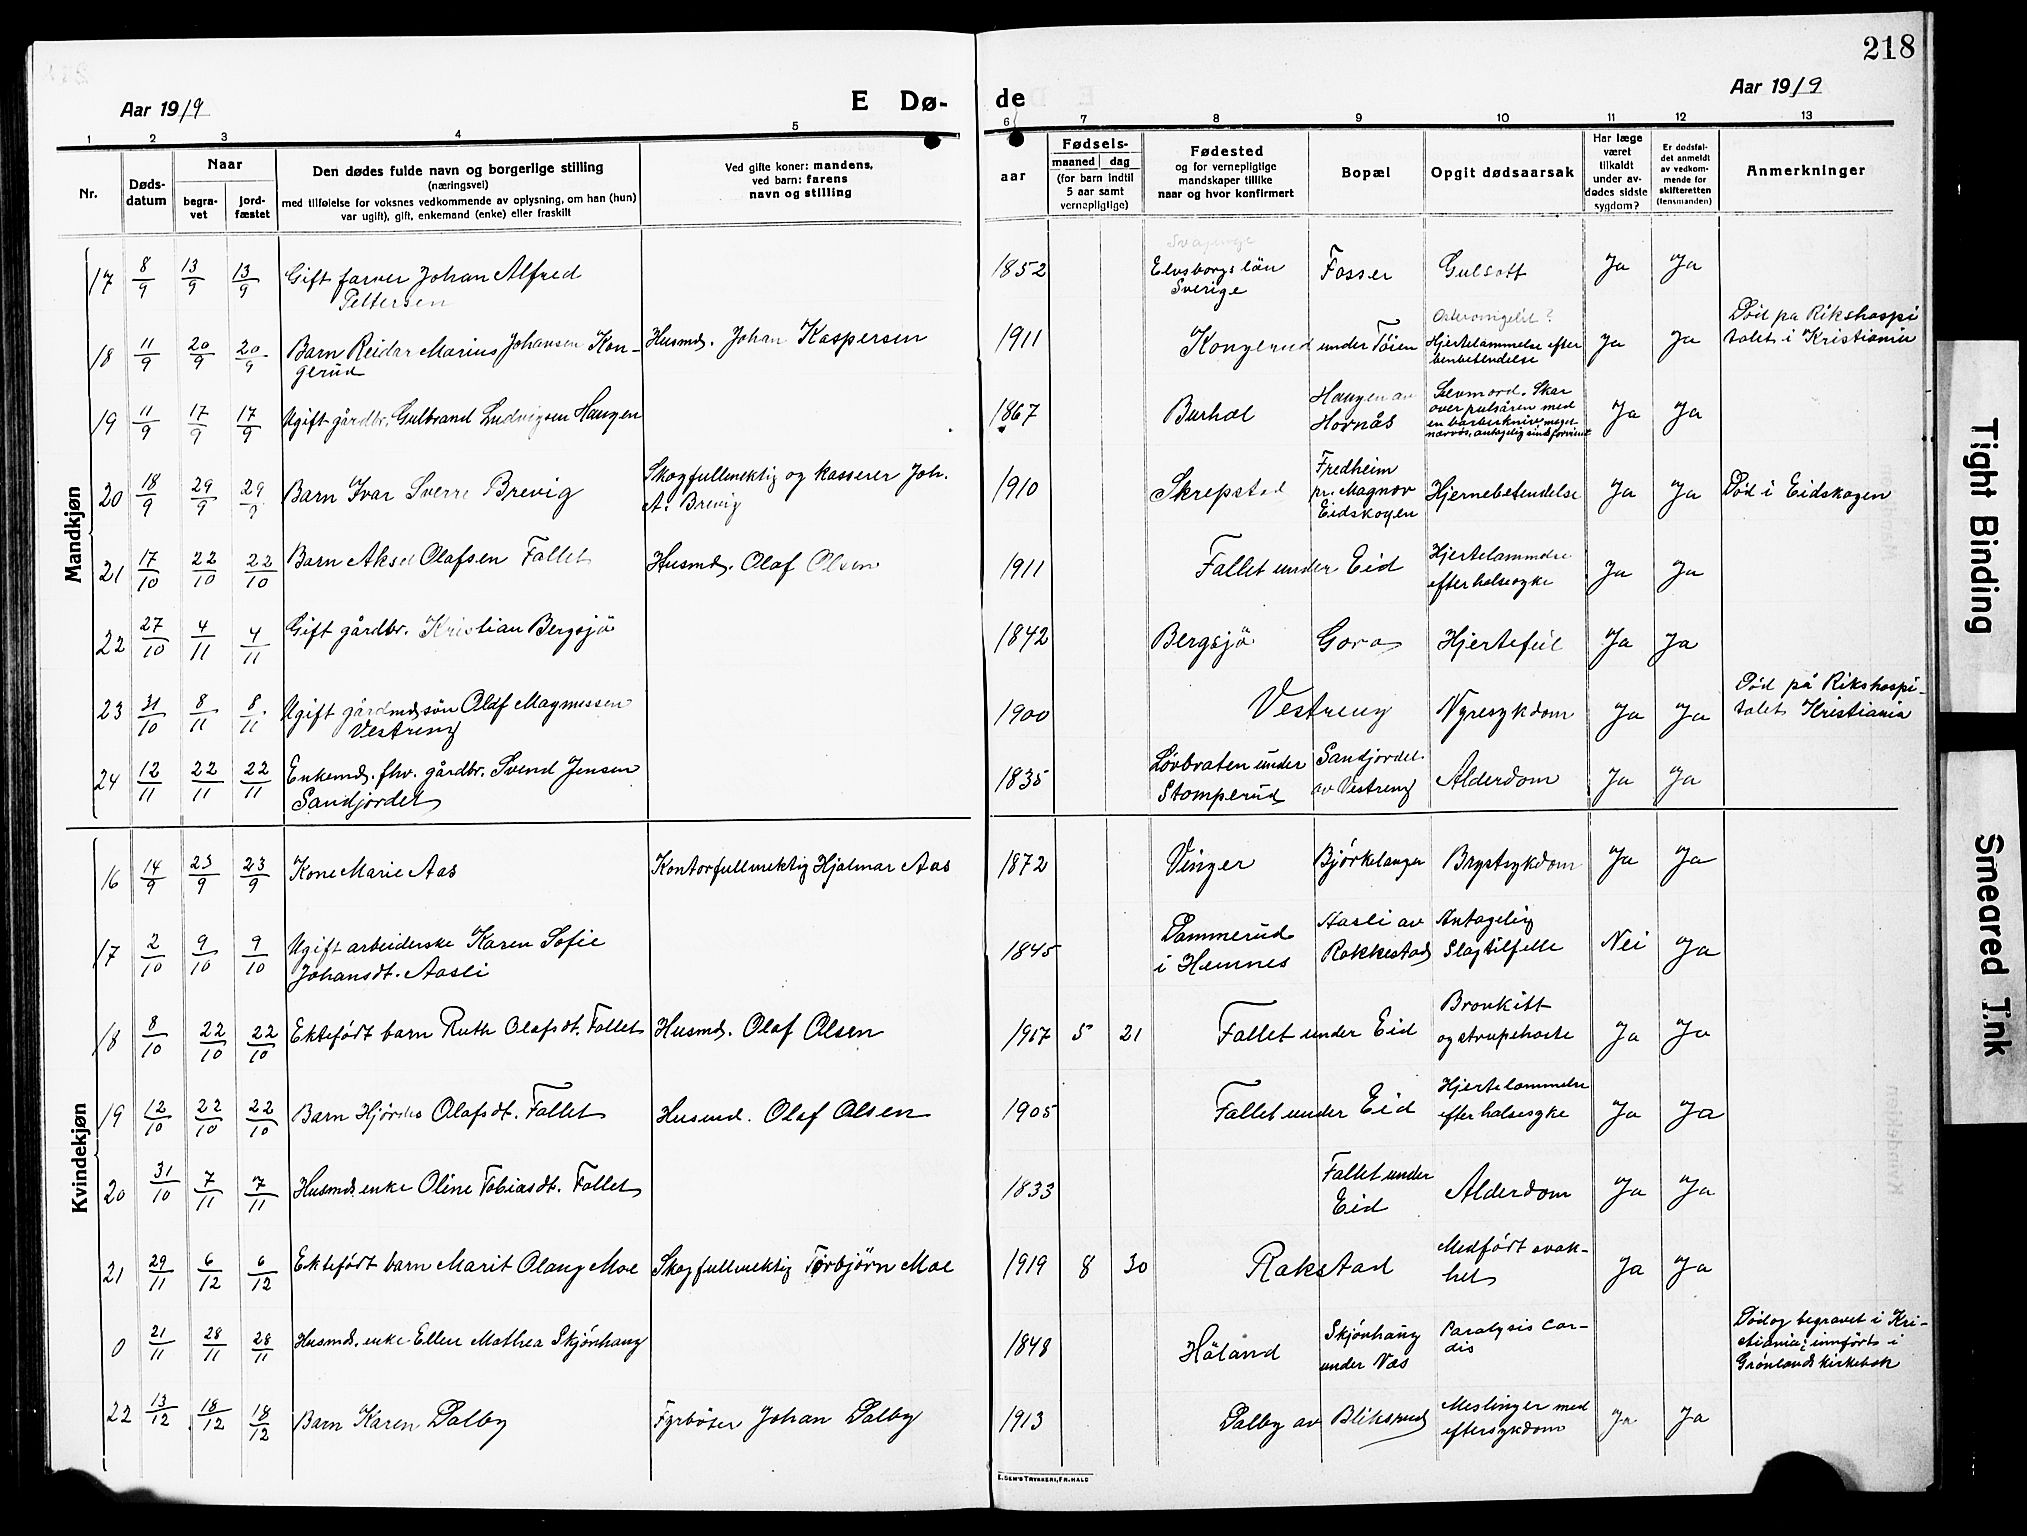 218
Aar 1919
E Dø-
de
Aar 1919
1 2 3 4 5 6 7 8 9 10 11 12 13
Nr.
Døds-
datum
Naar
begra-
vet
jord-
fæstet
Den dødes fulde navn og borgerlige stilling
(næringsvei)
med tilføielse for voksnes vedkommende av oplysning, om han (hun)
var ugift), gift, enkemand (enke) eller fraskilt
Ved gifte koner: mandens,
ved barn: farens
navn og stilling
aar
Fødsels-
maaned dag
(for barn indtil
5 aar samt
vernepligtige)
Fødested
og for vernepligtige
mandskaper tillike
naar og hvor konfirmert
Bopæl
Opgit dødsaarsak
Har læge
været
tilkaldt
under av-
dødes sidste
sygdom?
Er dødsfal-
det anmeldt
av vedkom-
mende for
skifteretten
(lensmanden)
Anmerkninger
Mandkjøn
17 8/9 13/9 13/9 Gift farver Johan Alfred
Pettersen
1852 Elvsborgs län
Sverige
Fosser Gulsott Ja Ja
18 11/9 20/9 20/9 Barn Reidar Marius Johansen Kon-
gerud
Husmd. Johan Kaspersen
1911 Kongerud under Töien
Hjertelammelse efter
benbetendelse
Ja Ja
Död på Rikshospi
talet i Kristiania
19 11/9 17/9 17/9 Ugift gårdbr. Gulbrand Ludvigsen Haugen
1867 Burhol
Haugen av
Hornås
Selvmord. Skar
over pulsåren med
en barberkniv, meget
nærvøs, antagelig sindsforvirret
Ja Ja
20 18/9 29/9 29/9 Barn Ivar Sverre Brevig
Skogfullmektig og kasserer Joh.
A. Brevig
1910 Skrepstad
Fredheim
pr. Magnor
Eidskogen
Hjernebetendelse Ja Ja Död i Eidskogen
21 17/10 22/10 22/10 Barn Aksel Olafsen Fallet Husmd. Olaf Olsen
1911 Fallet under Eid
Hjertelammelse
efter halssyke
Ja Ja
22 27/10 4/11 4/11 Gift gårdbr. Kristian Bergsjö
1842 Bergsjö Gora Hjertefeil Ja Ja
23 31/10 8/11 8/11 Ugift gårdmdssön Olaf Magnussen
Vestreng
1900 Vestreng Nyresykdom Ja Ja
Död på Rikshospi-
talet Kristiania
24 12/11 22/11 22/11 Enkemd. fhv. gårdbr. Svend Jensen
Sandjordet
1835 Lövbråten under
Stomperud
Sandjordet
av Vestreng
Alderdom Ja Ja
Kvindekjøn
16 14/9 23/9 23/9 Kone Marie Aas Kontorfullmektig Hjalmar Aas
1872 Vinger Björkelangen Brystsykdom Ja Ja
17 2/10 9/10 9/10 Ugift arbeiderske Karen Sofie
Johansdt. Aasli
1845 Dammerud
i Hemnes
Aasli av
Rakkestad
Antagelig
Slagtilfelle
Nei Ja
18 8/10 22/10 22/10 Ektefödt barn Ruth Olafsdt. Fallet Husmd. Olaf Olsen
1917 5 21 Fallet under Eid
Bronkitt
og strupehoste
Ja Ja
19 12/10 22/10 22/10 Barn Hjördis Olafsdt. Fallet Husmd. Olaf Olsen
1905 Fallet under Eid
Hjertelammelse
efter halssyke
Ja Ja
20 31/10 7/11 7/11 Husmds.enke Oline Tobiasdt. Fallet
1833 Fallet under
Eid
Alderdom Ja Ja
21 29/11 6/12 6/12 Ektefödt barn Marit Olaug Moe Skogfullmektig Torbjörn Moe
1919 8 30 Rakstad
Medfödt svak-
het
Ja Ja
0 21/11 28/11 28/11 Husmds.enke Ellen Mathea Skjönhaug
1848 Höland
Skjönhaug
under Næs
Paralysis cor-
dis
Död og begravet i Kri-
stiania; innförts i
Grönlands kirkebok
22 13/12 18/12 18/12 Barn Karen Dalby Fyrböter Johan Dalby
1913 Dalby av Bliksrud
Meslinger med
eftersykdom
Ja Ja
E. SEM'S TRYKKERI, FR.HALD
Tight Binding
Smeared Ink